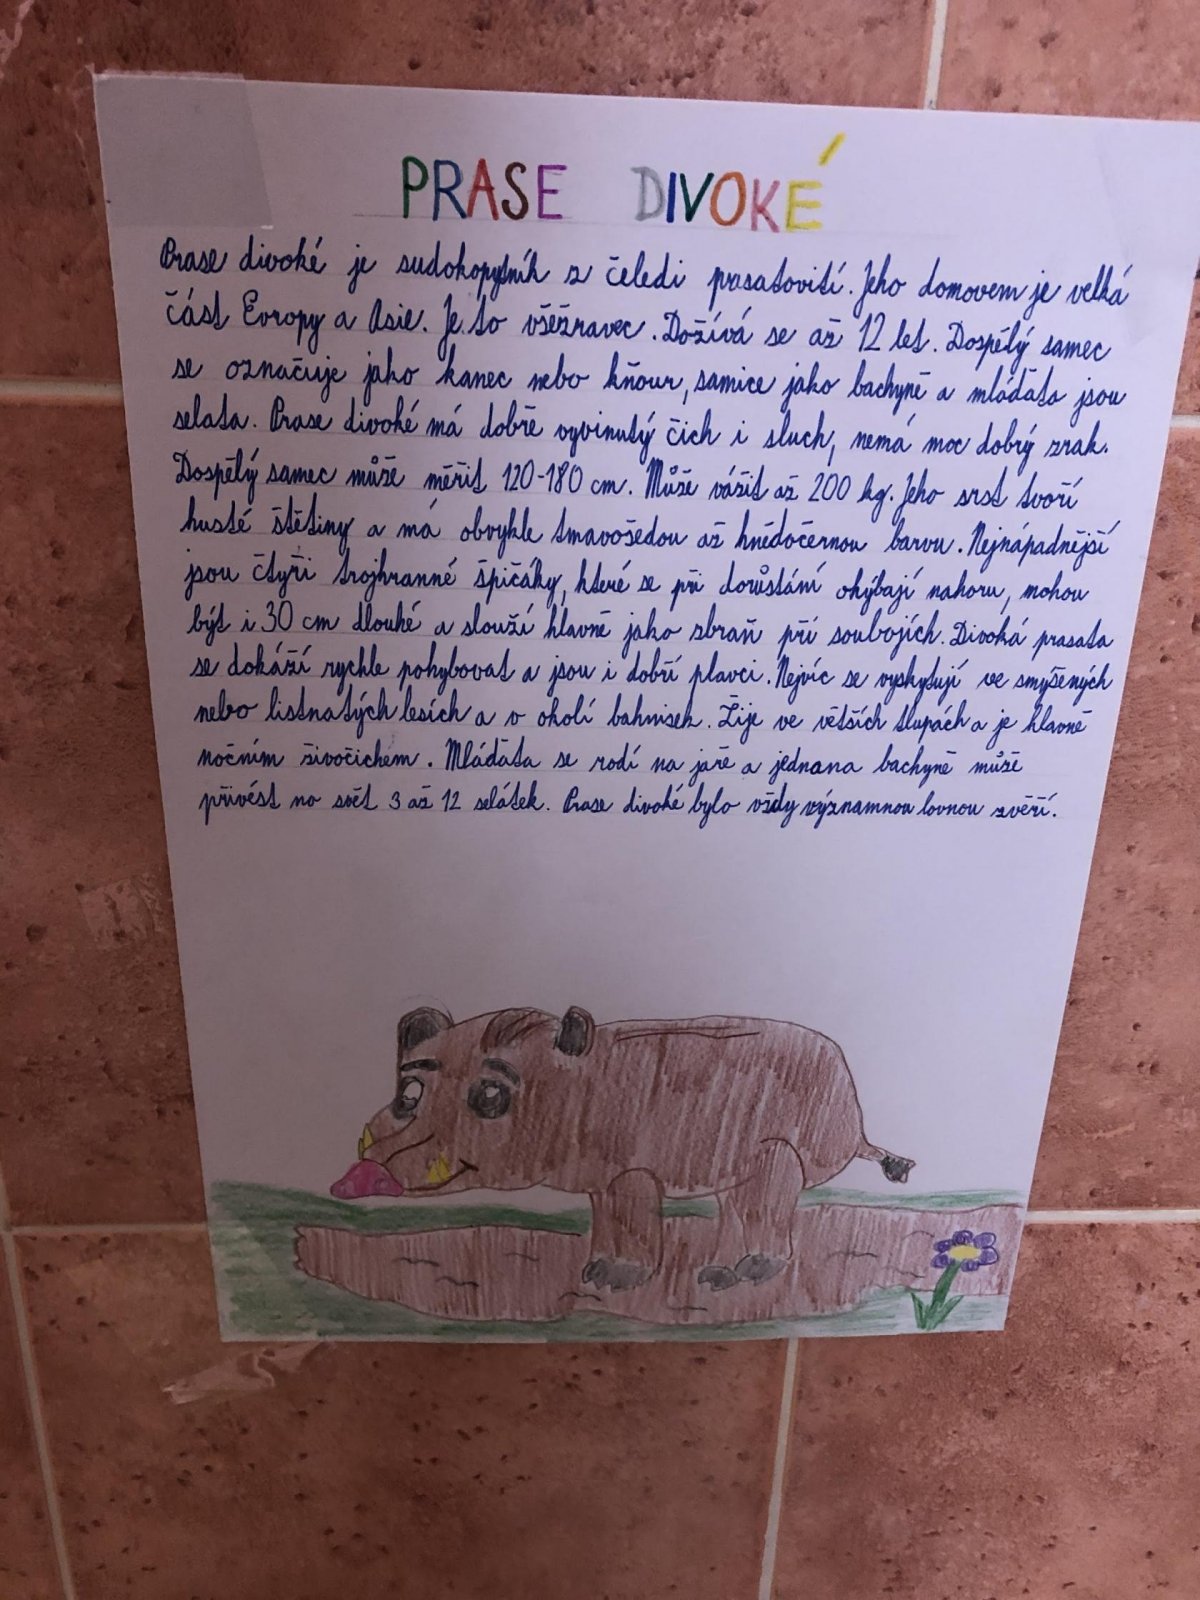 PRASE DIVOKÉ
Prase divoké je sudokopytník z čeledi prasatovití. Jeho domovem je velká
část Evropy a Asie. Je to všežravec. Dožívá se až 12 let. Dospělý samec
se označuje jako kanec nebo kňour, samice jako bachyně a mláďata jsou
selata. Prase divoké má dobře vyvinutý čich i sluch, nemá moc dobrý zrak.
Dospělý samec může měřit 120-180 cm. Může vážit až 200 kg. Jeho srst tvoří
husté štětiny a má obvykle tmavošedou až hnědočernou barvu. Nejnápadnější
jsou čtyři trojhranné špičáky, které se při dorůstání ohýbají nahoru, mohou
být i 30 cm dlouhé a slouží hlavně jako zbraň při soubojích. Divoká prasata
se dokáží rychle pohybovat a jsou i dobří plavci. Nejvíc se vyskytují ve smýšených
nebo listnatých lesích a v okolí bahnisek. Žije ve větších tlupách a je hlavně
nočním živočichem. Mláďata se rodí na jaře a jednana bachyně může
přivést na svět 3 až 12 selátek. Prase divoké bylo vždy významnou lovnou zvěří.